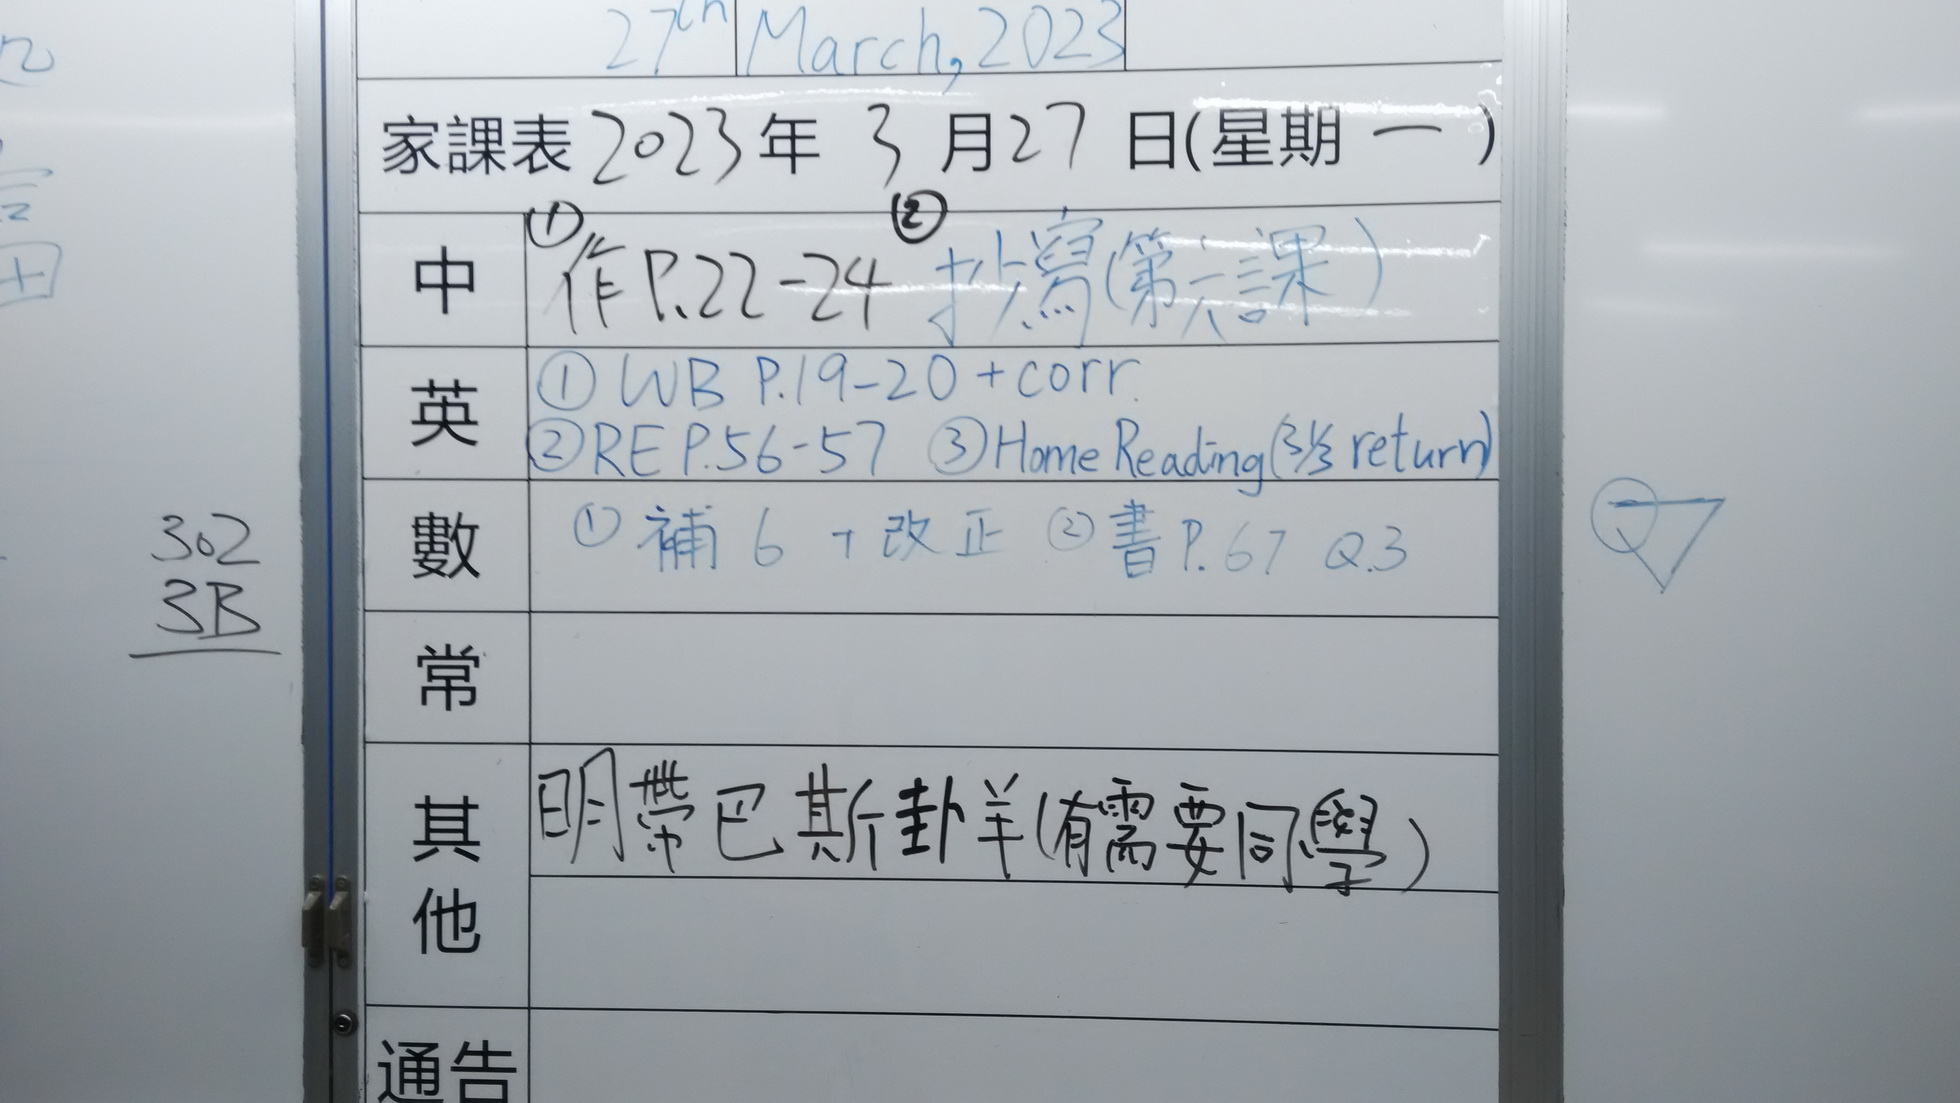 27th March, 2023
家課表 2023年 3月27日(星期一)
中 ① 作P.22-24 ② 抄寫(第六課)
英 ① WB P.19-20 + corr.
② RE P.56-57 ③ Home Reading (31/3 return)
數 ① 補6 + 改正 ② 書P.67 Q.3
常
其他 明帶巴斯卦羊(有需要同學)
通告
302
3B